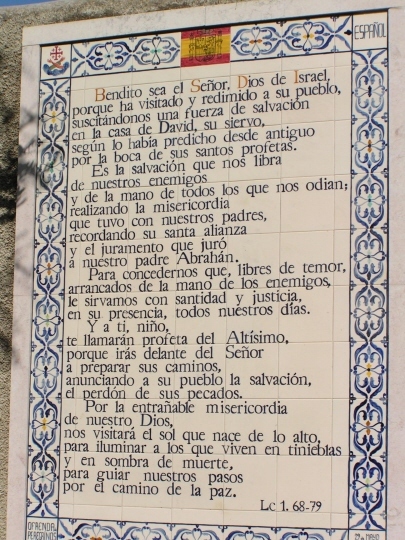 ESPAÑOL
Bendito sea el Señor, Dios de Israel,
porque ha visitado y redimido a su pueblo,
suscitándonos una fuerza de salvación
en la casa de David, su siervo,
según lo había predicho desde antiguo
por la boca de sus santos profetas.
Es la salvación que nos libra
de nuestros enemigos
y de la mano de todos los que nos odian;
realizando la misericordia
que tuvo con nuestros padres,
recordando su santa alianza
y el juramento que juró
a nuestro padre Abrahán.
Para concedernos que, libres de temor,
arrancados de la mano de los enemigos,
le sirvamos con santidad y justicia,
en su presencia, todos nuestros días.
Y a ti, niño,
te llamarán profeta del Altísimo,
porque irás delante del Señor
a preparar sus caminos,
anunciando a su pueblo la salvación,
el perdón de sus pecados.
Por la entrañable misericordia
de nuestro Dios,
nos visitará el sol que nace de lo alto,
para iluminar a los que viven en tinieblas
y en sombra de muerte,
para guiar nuestros pasos
por el camino de la paz.
Lc 1. 68-79
OFRENDA
PEREGRINOS